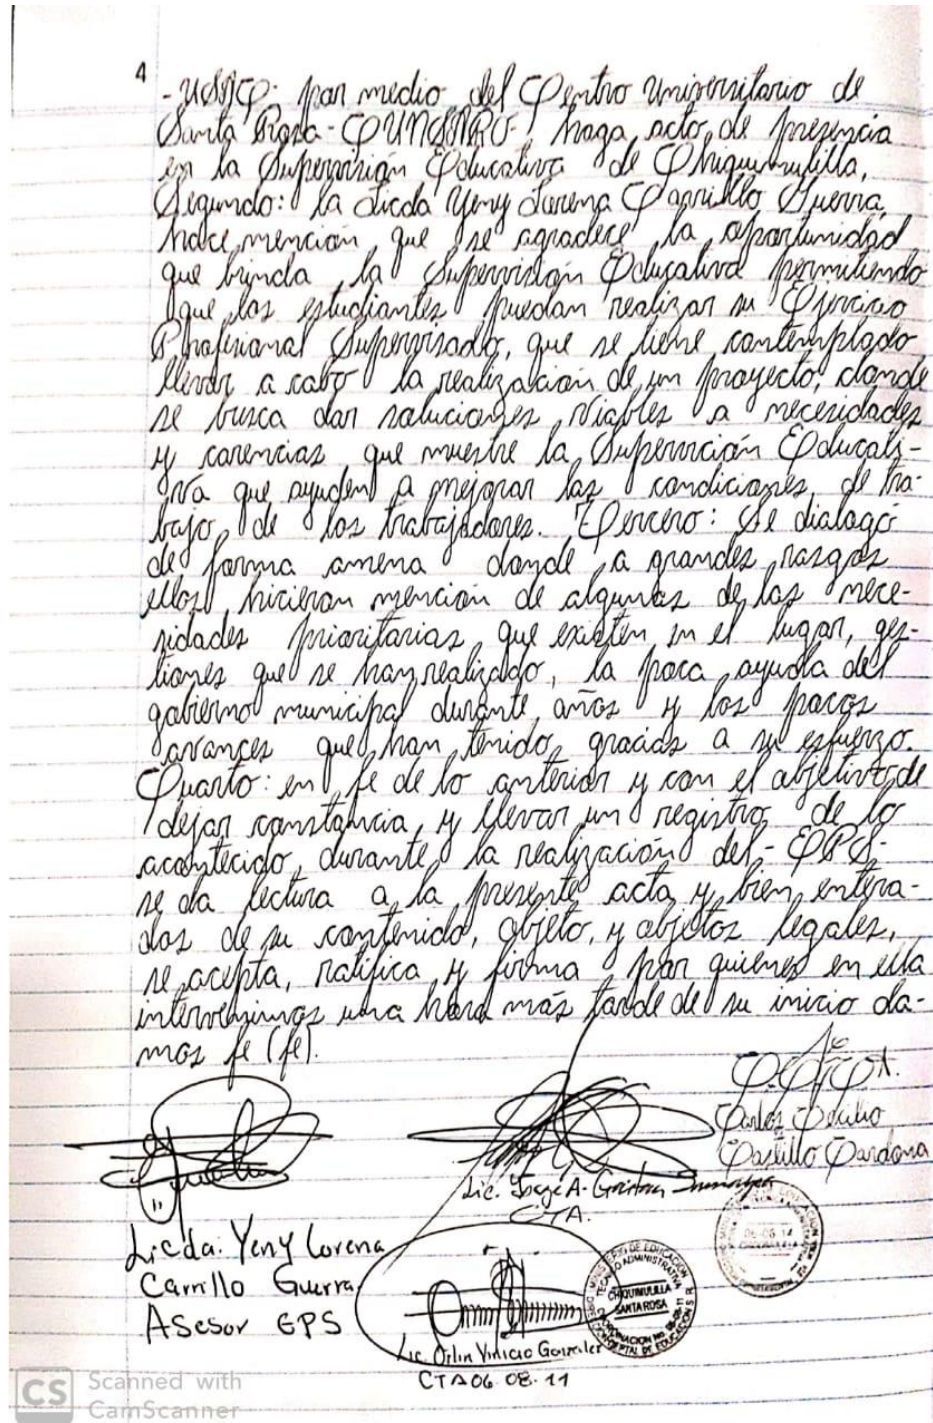 4
-USAC- por medio del Centro Universitario de
Santa Rosa -CUNSARO-, haga acto de presencia
en la Supervisión Educativa de Chiquimulilla,
Segundo: la Licda Yeny Lorena Carrillo Guerra,
hace mención que se agradece la oportunidad
que brinda la Supervisión Educativa permitiendo
que los estudiantes puedan realizar su Ejercicio
Profesional Supervisado, que se tiene contemplado
llevar a cabo la realización de un proyecto, donde
se busca dar soluciones viables a necesidades
y carencias que muestre la Supervición Educati-
va que ayuden a mejorar las condiciones de tra-
bajo de los trabajadores. Tercero: Se dialogó
de forma amena donde a grandes rasgos
ellos hicieron mención de algunas de las nece-
sidades prioritarias que existen en el lugar, ges-
tiones que se han realizado, la poca ayuda del
gobierno municipal durante años y los pocos
avances que han tenido gracias a su esfuerzo.
Cuarto: en fe de lo anterior y con el objetivo de
dejar constancia y llevar un registro de lo
acontecido durante la realización del -EPS-
se da lectura a la presente acta y bien entera-
dos de su contenido, objeto, y objetos legales,
se acepta, ratifica y firma por quienes en ella
intervenimos una hora más tarde de su inicio da-
mos fe (fe).
Carlos Cecilio
Castillo Cardona
Lic. Jorge A.
CTA.
Licda. Yeny Lorena
Carrillo Guerra
Asesor EPS
Lic. Orlin Vinicio González
CTA 06-08-11
MINISTERIO DE EDUCACIÓN
TECNICO ADMINISTRATIVA
CHIQUIMULILLA
SANTA ROSA
06-08-14
CS Scanned with
CamScanner